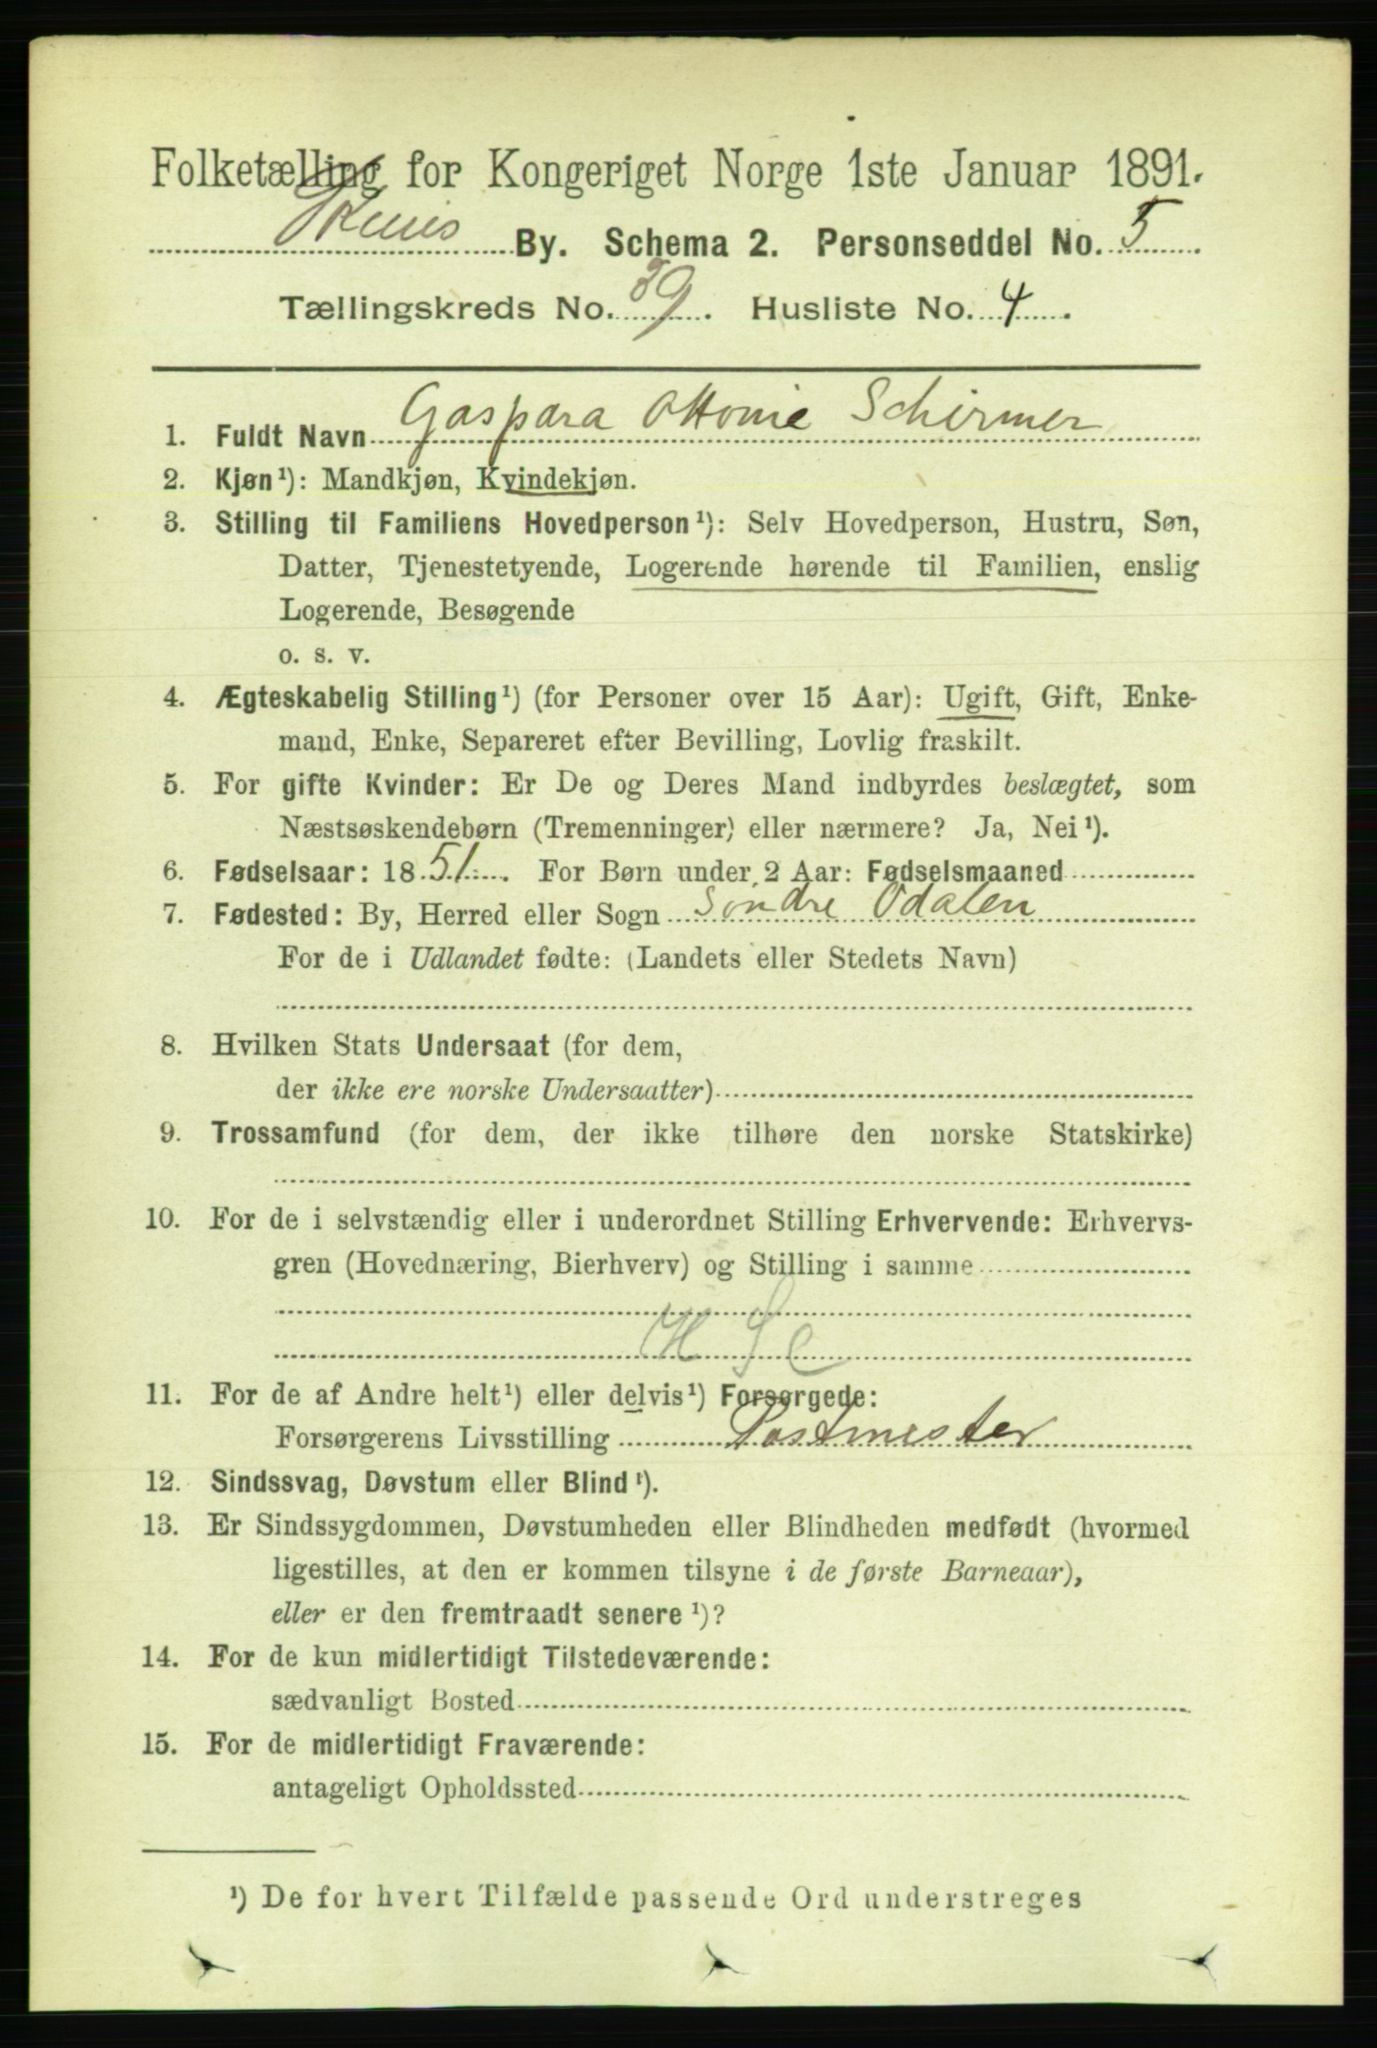 Folketælling for Kongeriget Norge 1ste Januar 1891.
Skiens By. Schema 2. Personseddel No. 5
Tællingskreds No. 39. Husliste No. 4.
1. Fuldt Navn Gaspara Ottonie Schirmer
2. Kjøn¹): Mandkjøn, Kvindekjøn.
3. Stilling til Familiens Hovedperson¹): Selv Hovedperson, Hustru, Søn,
Datter, Tjenestetyende, Logerende hørende til Familien, enslig
Logerende, Besøgende
o. s. v.
4. Ægteskabelig Stilling¹) (for Personer over 15 Aar): Ugift, Gift, Enke-
mand, Enke, Separeret efter Bevilling, Lovlig fraskilt.
5. For gifte Kvinder: Er De og Deres Mand indbyrdes beslægtet, som
Næstsøskendebørn (Tremenninger) eller nærmere? Ja, Nei¹).
6. Fødselsaar: 1851. For Børn under 2 Aar: Fødselsmaaned
7. Fødested: By, Herred eller Sogn Söndre Odalen
For de i Udlandet fødte: (Landets eller Stedets Navn)
8. Hvilken Stats Undersaat (for dem,
der ikke ere norske Undersaatter)
9. Trossamfund (for dem, der ikke tilhøre den norske Statskirke)
10. For de i selvstændig eller i underordnet Stilling Erhvervende: Erhvervs-
gren (Hovednæring, Bierhverv) og Stilling i samme
11. For de af Andre helt¹) eller delvis¹) Forsørgede:
Forsørgerens Livsstilling Postmester
12. Sindssvag, Døvstum eller Blind¹).
13. Er Sindssygdommen, Døvstumheden eller Blindheden medfødt (hvormed
ligestilles, at den er kommen tilsyne i de første Barneaar),
eller er den fremtraadt senere¹)?
14. For de kun midlertidigt Tilstedeværende:
sædvanligt Bosted
15. For de midlertidigt Fraværende:
antageligt Opholdssted
¹) De for hvert Tilfælde passende Ord understreges